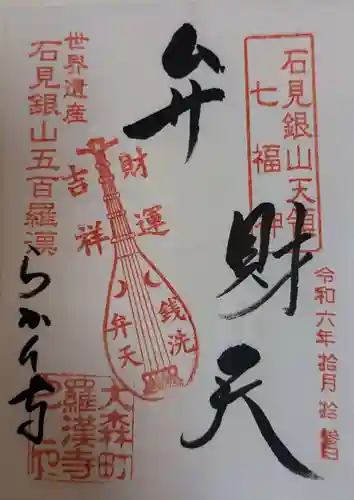 石見銀山天領
七福神
弁財天
令和六年拾月拾
世界遺産
石見銀山五百羅漢
吉祥
財運
弁天
銭洗
らかん寺
大森町
羅漢寺